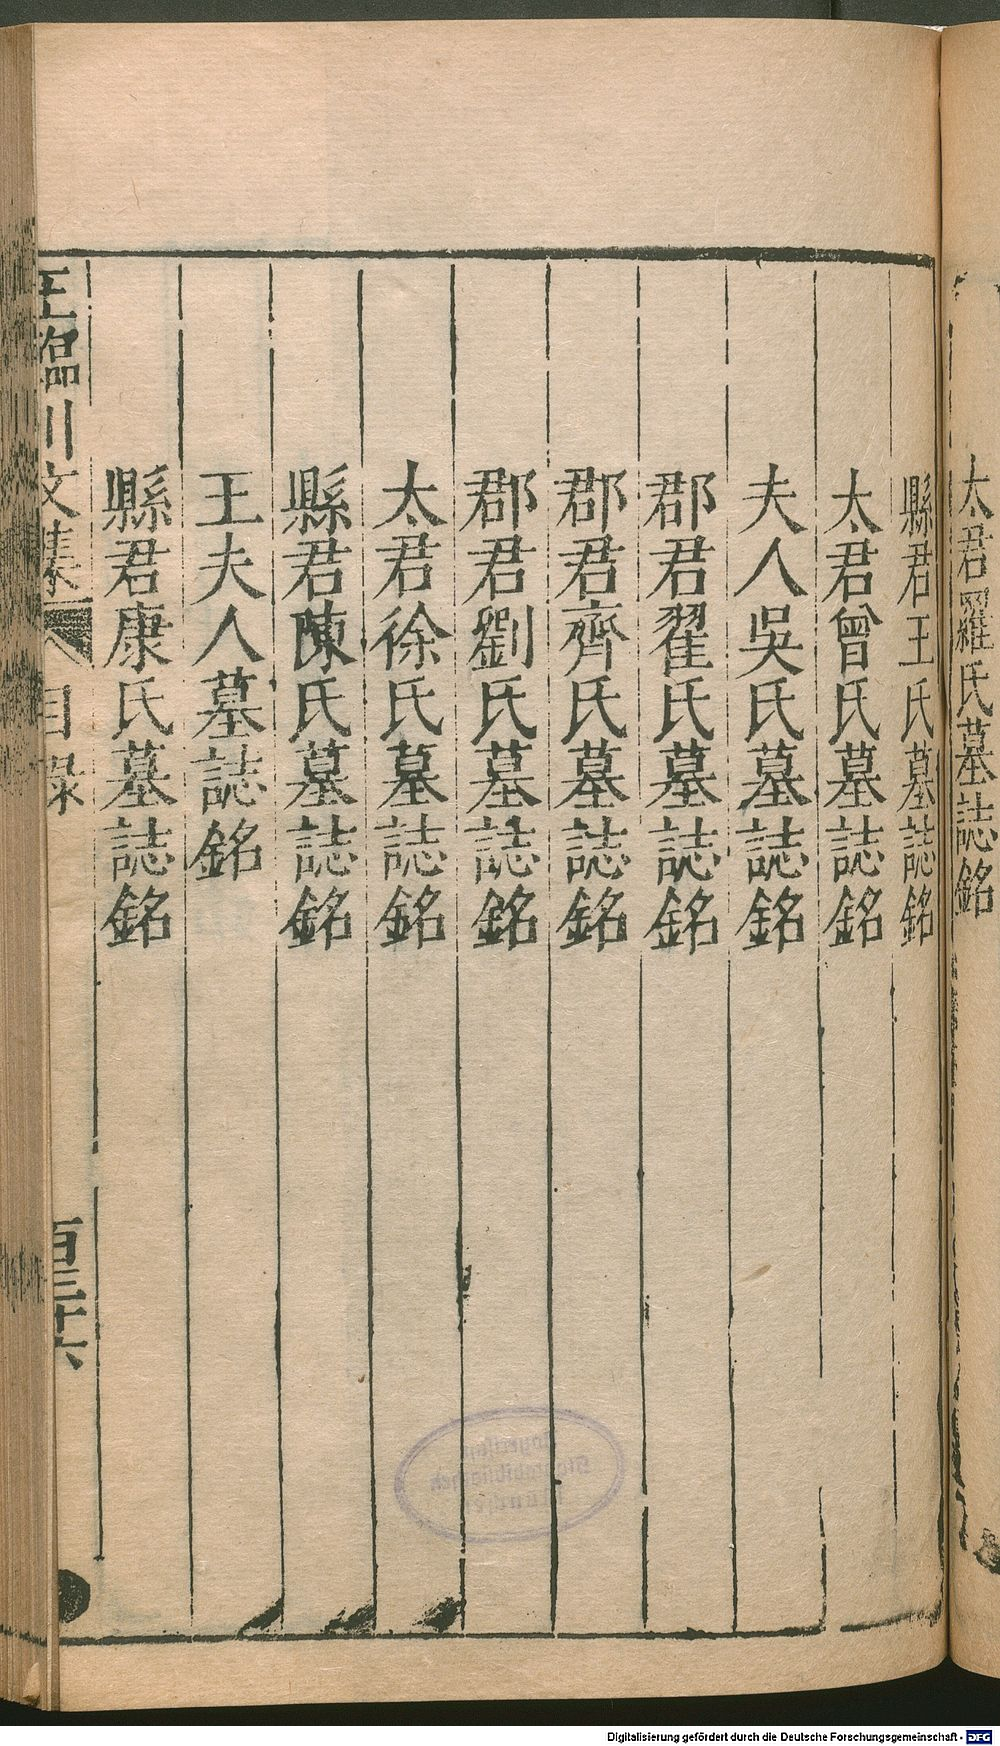 太君羅氏墓誌銘
縣君王氏墓誌銘
太君曾氏墓誌銘
夫人吳氏墓誌銘
郡君翟氏墓誌銘
郡君齊氏墓誌銘
郡君劉氏墓誌銘
太君徐氏墓誌銘
縣君陳氏墓誌銘
王夫人墓誌銘
縣君康氏墓誌銘
王臨川文集 目錄 百三十六
Digitalisierung gefördert durch die Deutsche Forschungsgemeinschaft - DFG